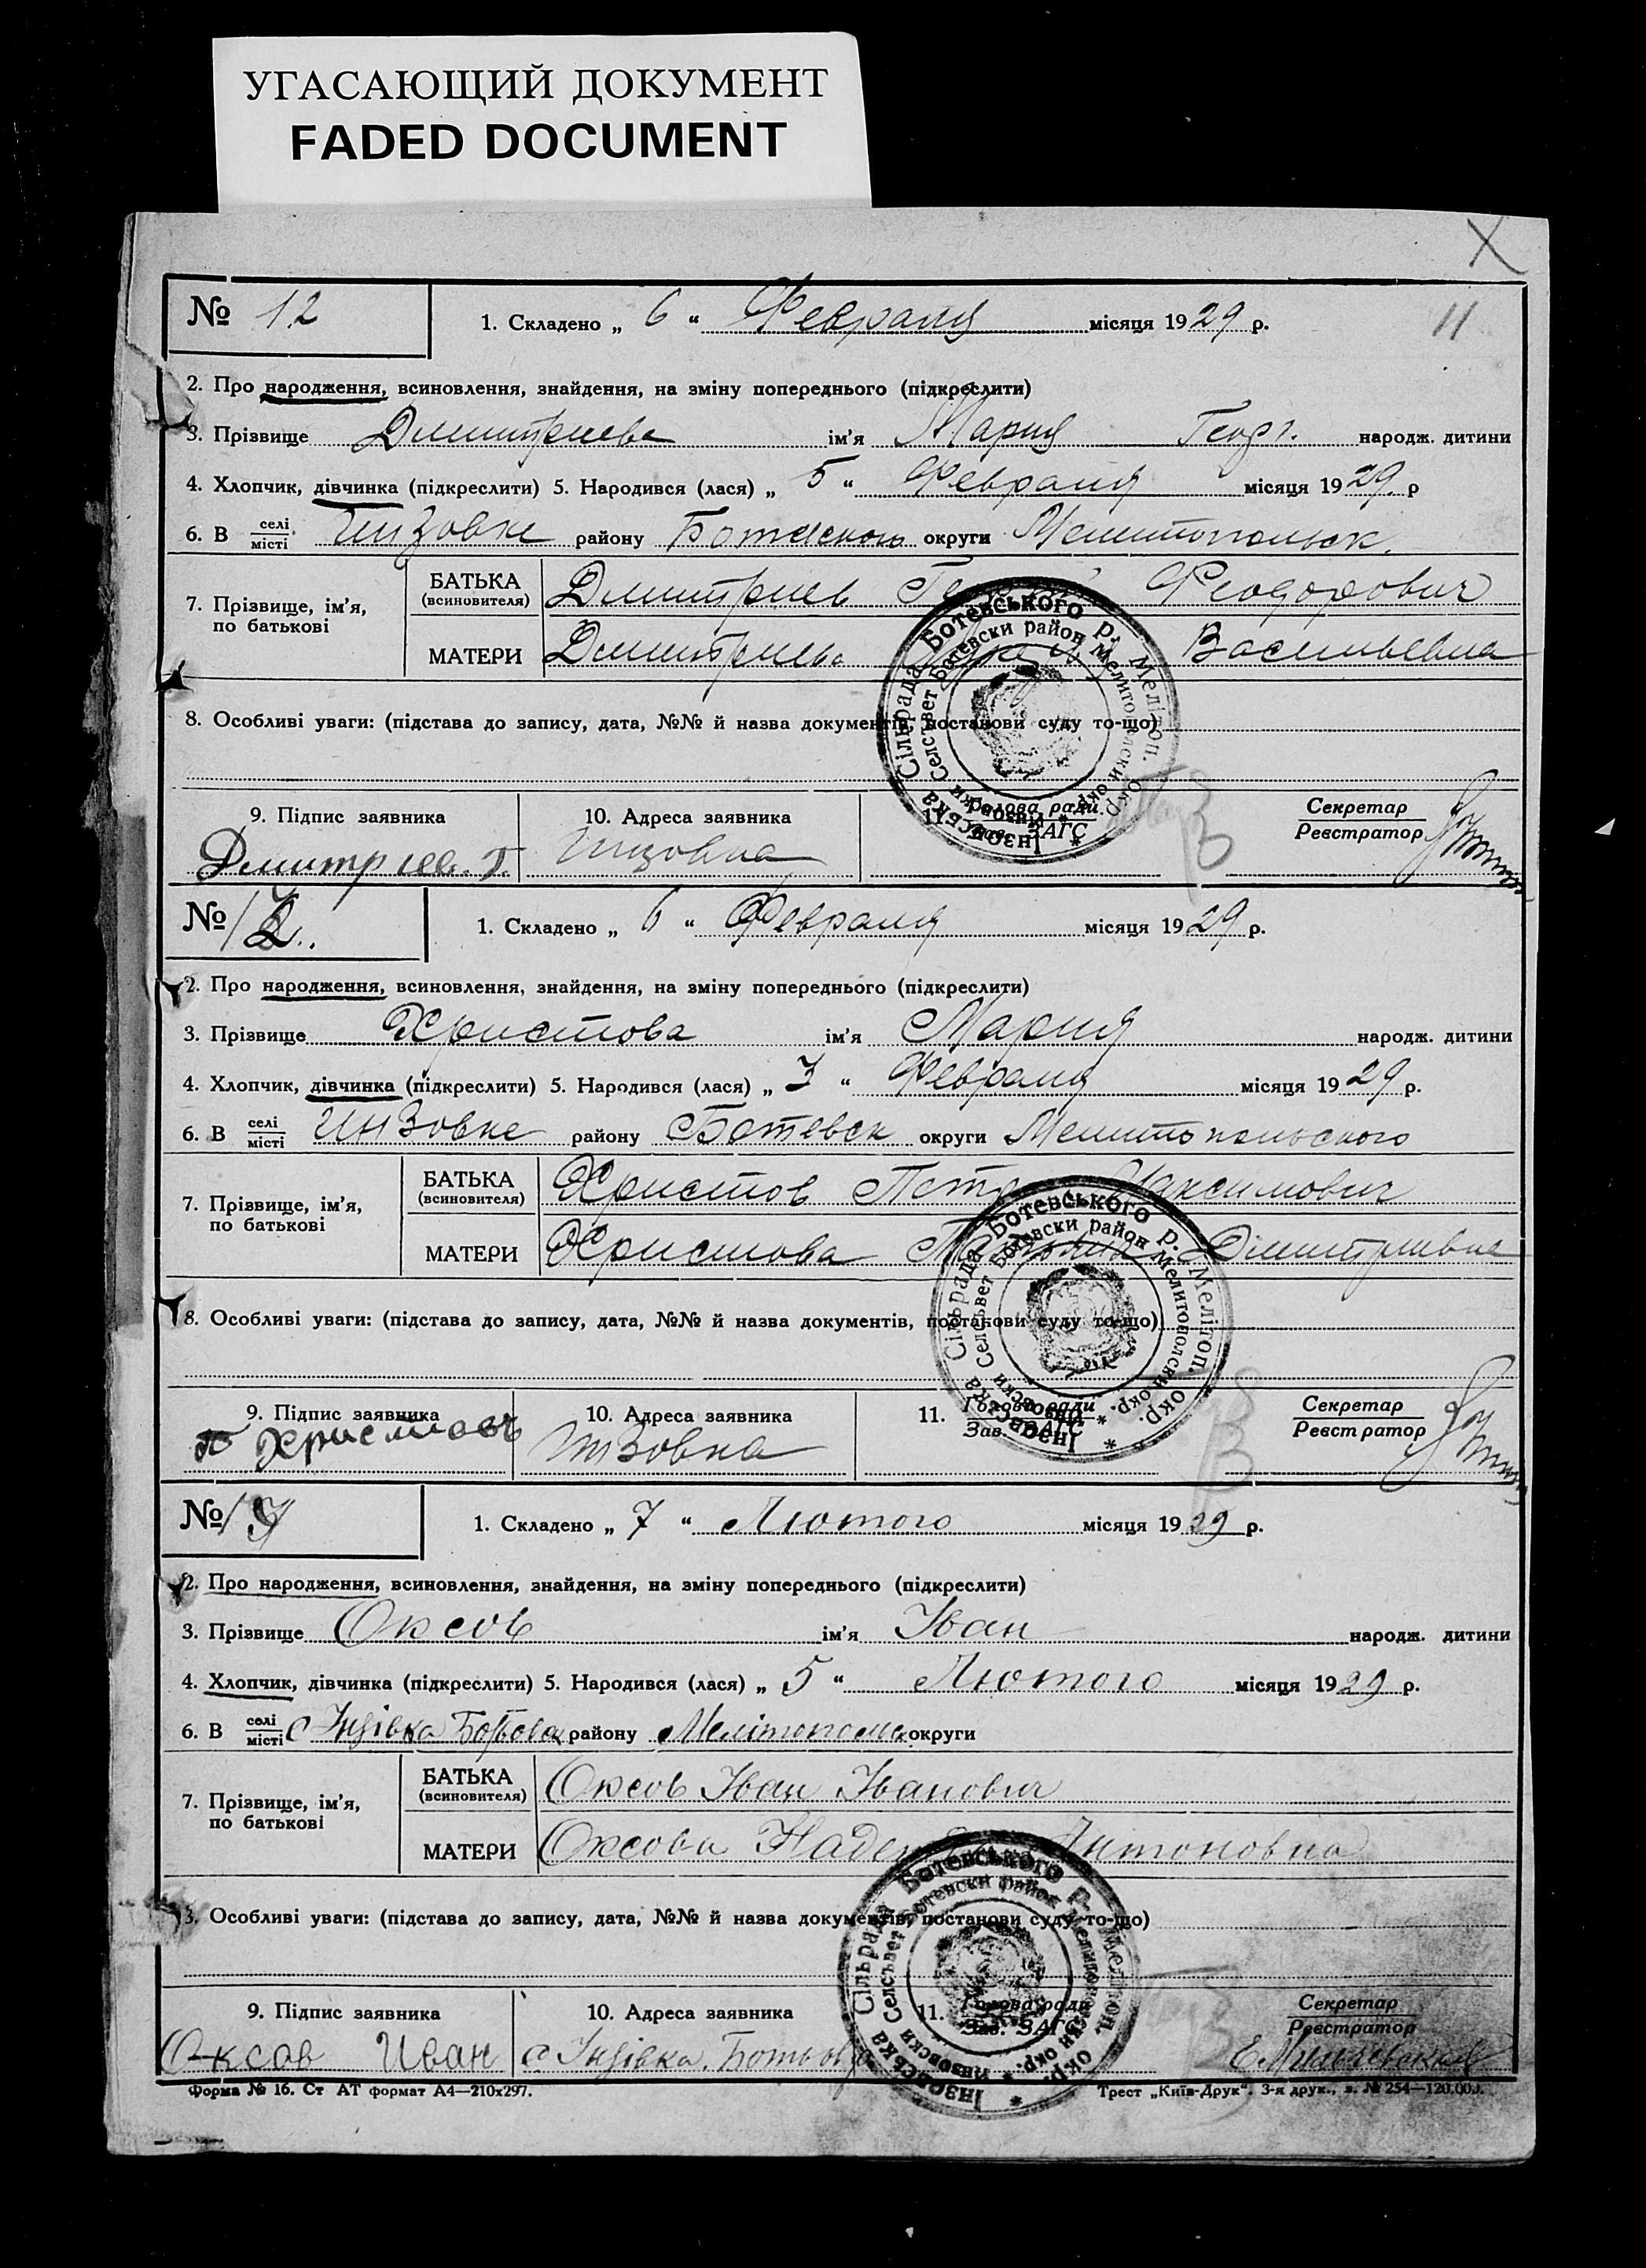 УГАСАЮЩИЙ ДОКУМЕНТ
FADED DOCUMENT
№ 12 1. Складено „ 6 “ Февраля місяця 1929 р. 11
2. Про народження, всиновлення, знайдення, на зміну попереднього (підкреслити)
3. Прізвище Димитриева ім'я Мария Георг. народж. дитини
4. Хлопчик, дівчинка (підкреслити) 5. Народився (лася) „ 5 “ Февраля місяця 1929 р
6. В селі місті Инзовке району Ботевского округи Мелитопольск.
7. Прізвище, ім'я, по батькові
БАТЬКА (всиновителя) Димитриев Феодорович
МАТЕРИ Димитриева Васильевна
8. Особливі уваги: (підстава до запису, дата, №№ й назва документів, постанови суду то-що)
9. Підпис заявника 10. Адреса заявника 11. Голова ради Зав. ЗАГС Секретар Реєстратор
Дмитриев. Г. Инзовка
Інзовська Сільрада Ботевського р. Мелітоп. Окр.
Инзовски Селсъвет Ботевски район Мелитополски окр.
№ 1. Складено „ 6 “ Февраля місяця 1929 р.
2. Про народження, всиновлення, знайдення, на зміну попереднього (підкреслити)
3. Прізвище Христова ім'я Мария народж. дитини
4. Хлопчик, дівчинка (підкреслити) 5. Народився (лася) „ 3 “ Февраля місяця 1929 р.
6. В селі місті Инзовке району Ботевск округи Мелитопольского
7. Прізвище, ім'я, по батькові
БАТЬКА (всиновителя) Христов Петр Максимович
МАТЕРИ Христова Димитриевна
8. Особливі уваги: (підстава до запису, дата, №№ й назва документів, постанови суду то-що)
9. Підпис заявника 10. Адреса заявника 11. Голова ради Зав. ЗАГС Секретар Реєстратор
П Христовъ Инзовка
Інзовська Сільрада Ботевського р. Мелітоп. Окр.
Инзовски Селсъвет Ботевски район Мелитополски окр.
№ 1. Складено „ 7 “ Лютого місяця 1929 р.
2. Про народження, всиновлення, знайдення, на зміну попереднього (підкреслити)
3. Прізвище Оксов ім'я Іван народж. дитини
4. Хлопчик, дівчинка (підкреслити) 5. Народився (лася) „ 5 “ Лютого місяця 1929 р.
6. В селі місті с Інзівка району округи
7. Прізвище, ім'я, по батькові
БАТЬКА (всиновителя) Оксов Іван Іванович
МАТЕРИ Оксова Надежда Антоновна
8. Особливі уваги: (підстава до запису, дата, №№ й назва документів, постанови суду то-що)
9. Підпис заявника 10. Адреса заявника 11. Голова ради Зав. ЗАГС Секретар Реєстратор
Оксов Иван с Інзівка.
Інзовська Сільрада Ботевського р. Мелітоп. Окр.
Инзовски Селсъвет Ботевски район Мелитополски окр.
Форма № 16. Ст АТ формат А4—210х297. Трест „Київ-Друк“. 3-я друк., з. № 254—120.000.